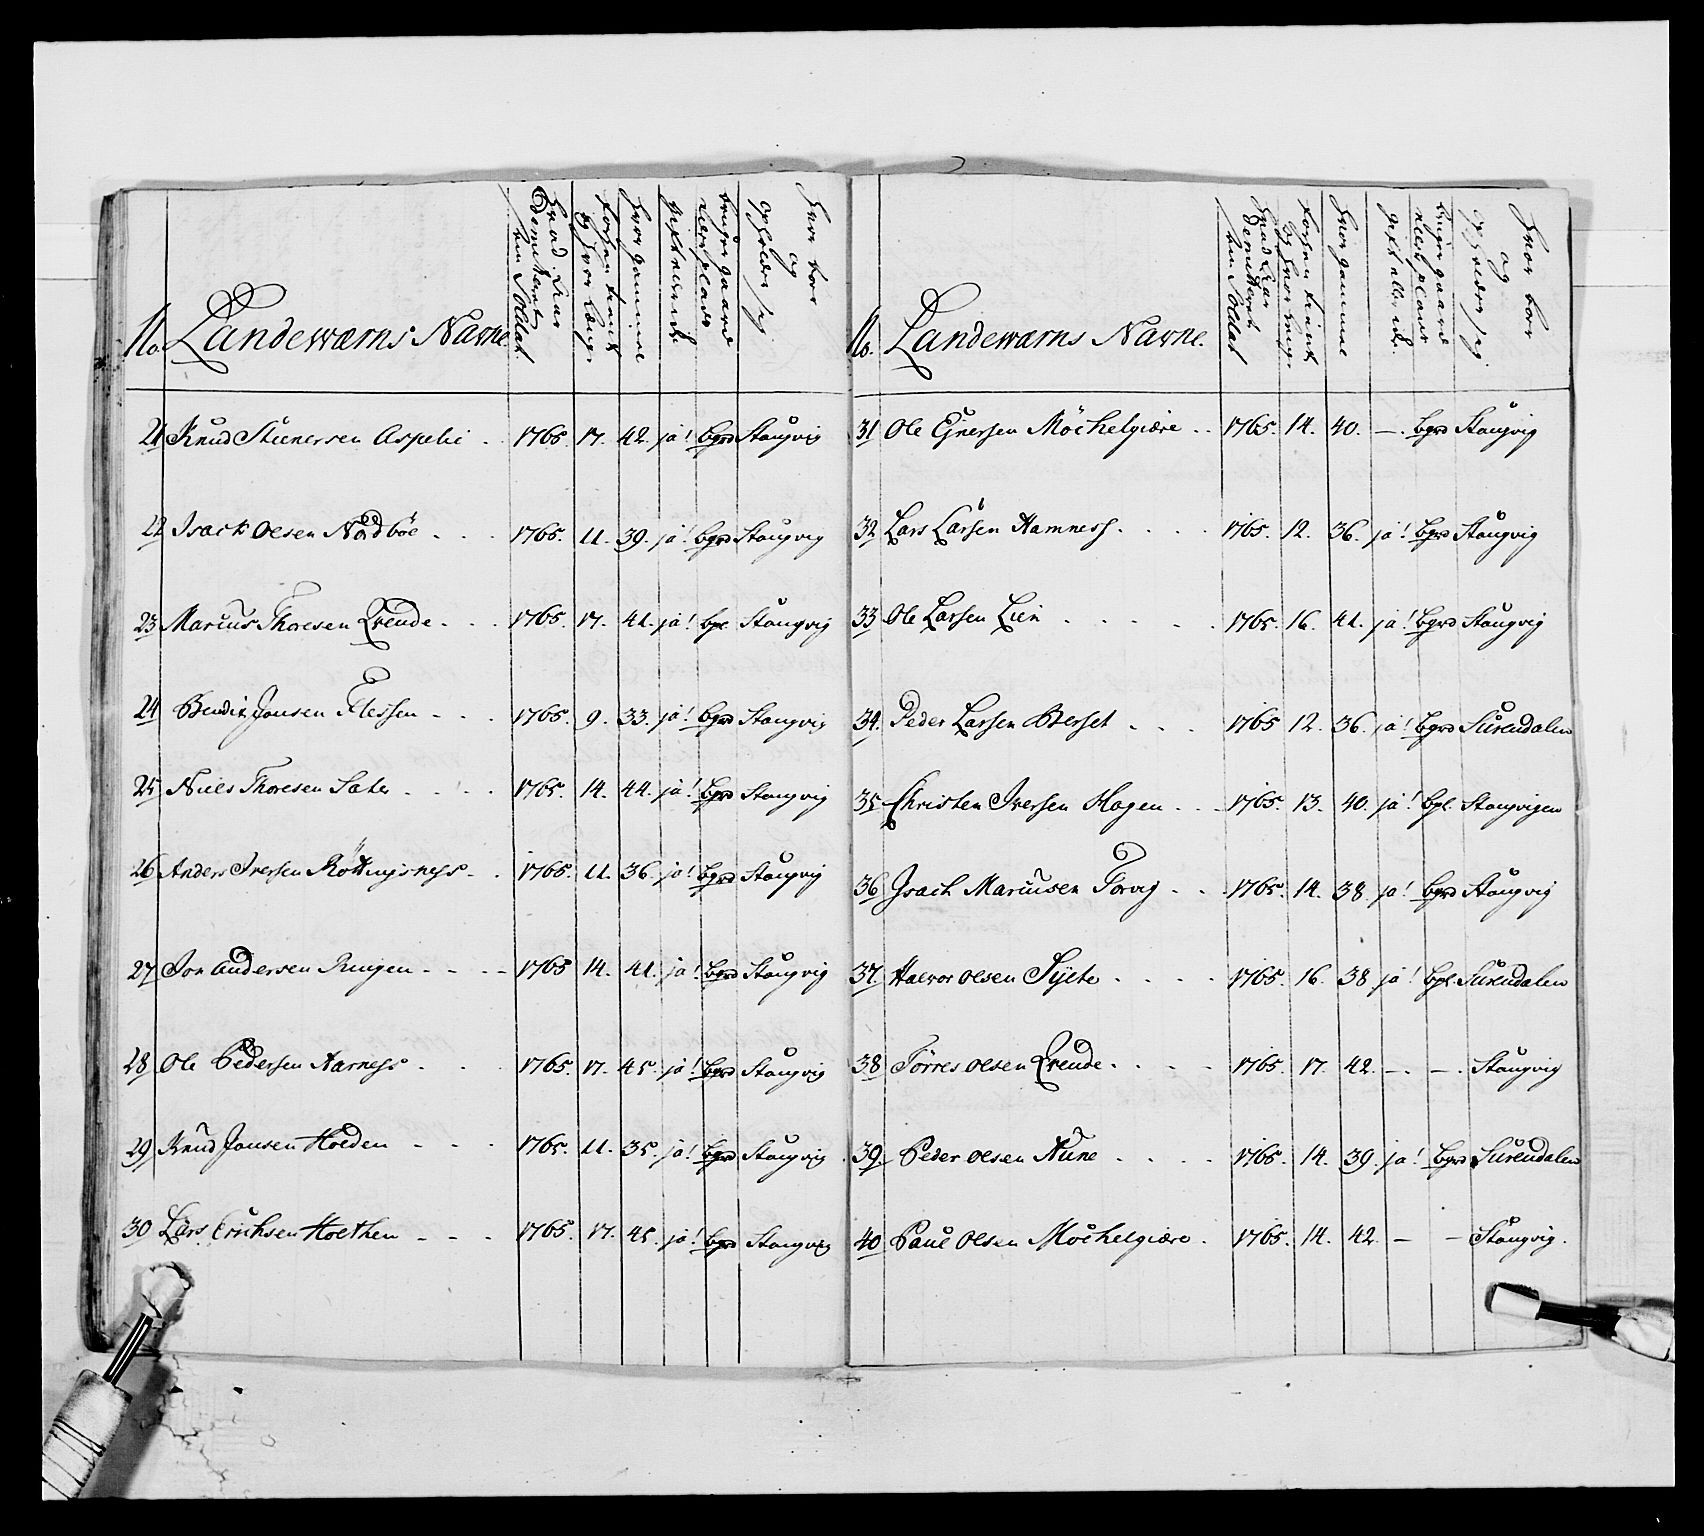 No. Landewærns Navne
hvad Aar demitteret som Soldat
hvor længe forhen tient
hvor gammel
gift eller ei
bruger gaard eller plads
hvor boer og opholder sig
21 Knud Steenersen Aspelie - 1765. 17. 42. ja! bgrd Stangvig
22 Isack Olsen Nordbøe - - - 1765. 11. 39. ja! bgrd Stangvig
23 Marius Thoresen Qvende - - - 1765. 17. 41. ja! bpl. Stangvig
24 Bendix Jonsen Flessen - - - 1765. 9. 33. ja! bgrd Stangvig
25 Niels Thoresen Sæter - - - 1765. 14. 44. ja! bgrd Stangvig
26 Anders Iversen Røttingsness - - 1765. 11. 36. ja! bgrd Stangvig
27 Jon Andersen Ringen - - - - 1765 14. 41. ja! bgrd Stangvig
28 Ole Pedersen Aarness - - - 1765. 17. 45. ja! bgrd Stangvig
29 Knud Jonsen Holden - - - 1765. 11. 35. ja! bgrd Stangvig
30 Lars Erichsen Holthen - - - 1765. 17. 45. ja! bgrd Stangvig
No. Landewærns Navne.
hvad Aar demitteret som Soldat
hvor længe forhen tient
hvor gammel
gift eller ei
bruger gaard eller plads
hvor boer og opholder sig
31 Ole Ejnersen Møchelgiære - - 1765. 14. 40. - . bgrd Stangvig
32 Lars Larsen Hamness - - - - 1765. 12. 36. ja! bgrd Stangvig
33 Ole Larsen Lien - - - - - 1765. 16. 41. ja! bgrd Stangvig
34. Peder Larsen Bterset - - - 1765 12. 36. ja! bgrd Surendalen
35 Christen Iversen Hagen - - - 1765. 13. 40. ja! bpl. Stangvigen
36 Isach Mariusen Torvig - - - 1765. 14. 38 ja! bgrd Stangvig
37. Halvor Olsen Sylte - - - - 1765. 16. 38 ja! bpl. Surendalen
38 Tørres Olsen Qvende - - - - 1765. 17. 42. - . - . Stangvig
39. Peder Olsen Aune - - - - 1765. 14. 39. ja! bgrd Surendalen
40 Paul Olsen Møchelgiære - 1765. 14. 42. - - Stangvig.